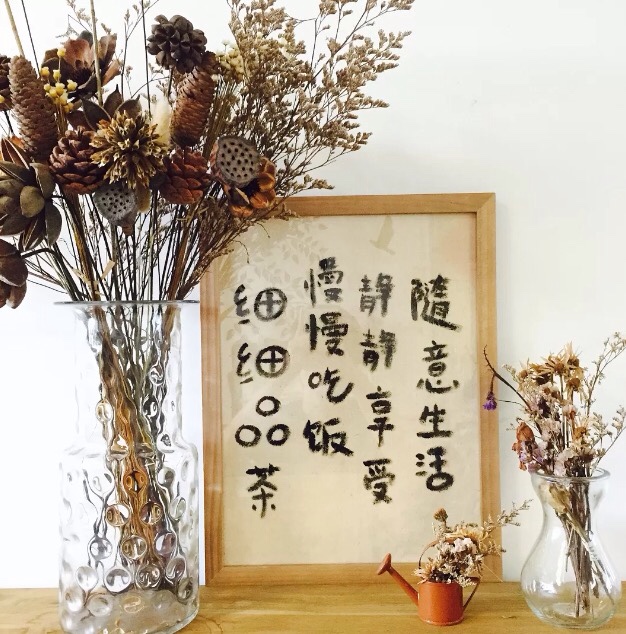 隨意生活
静静享受
慢慢吃饭
细细品茶